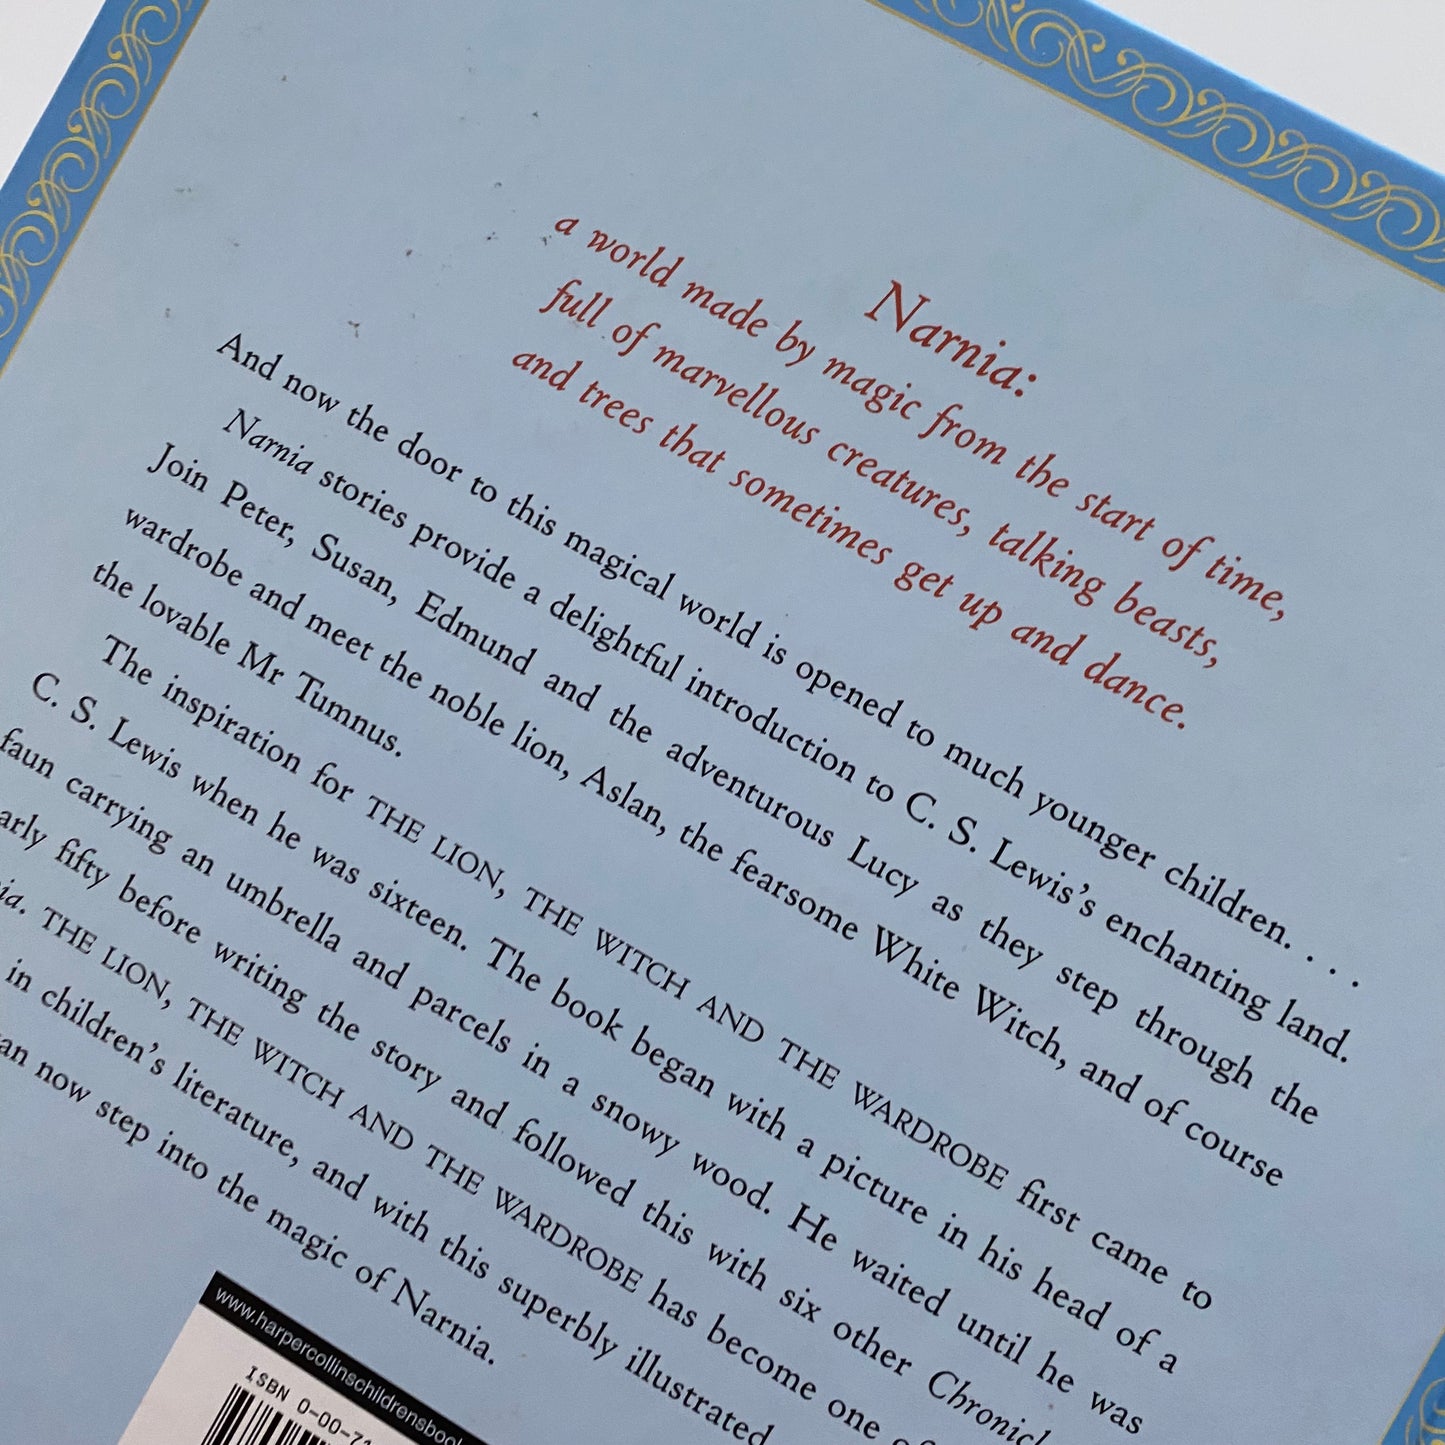 Narnia:
a world made by magic from the start of time,
full of marvellous creatures, talking beasts,
and trees that sometimes get up and dance.
And now the door to this magical world is opened to much younger children. . . .
Narnia stories provide a delightful introduction to C. S. Lewis's enchanting land.
Join Peter, Susan, Edmund and the adventurous Lucy as they step through the
wardrobe and meet the noble lion, Aslan, the fearsome White Witch, and of course
the lovable Mr Tumnus.
The inspiration for THE LION, THE WITCH AND THE WARDROBE first came to
C. S. Lewis when he was sixteen. The book began with a picture in his head of a
faun carrying an umbrella and parcels in a snowy wood. He waited until he was
fifty before writing the story and followed this with six other
THE LION, THE WITCH AND THE WARDROBE has become one
in children's literature, and with this superbly illustrated
now step into the magic of Narnia.
www.harpercollinschildrensboo
ISBN 0-00-7